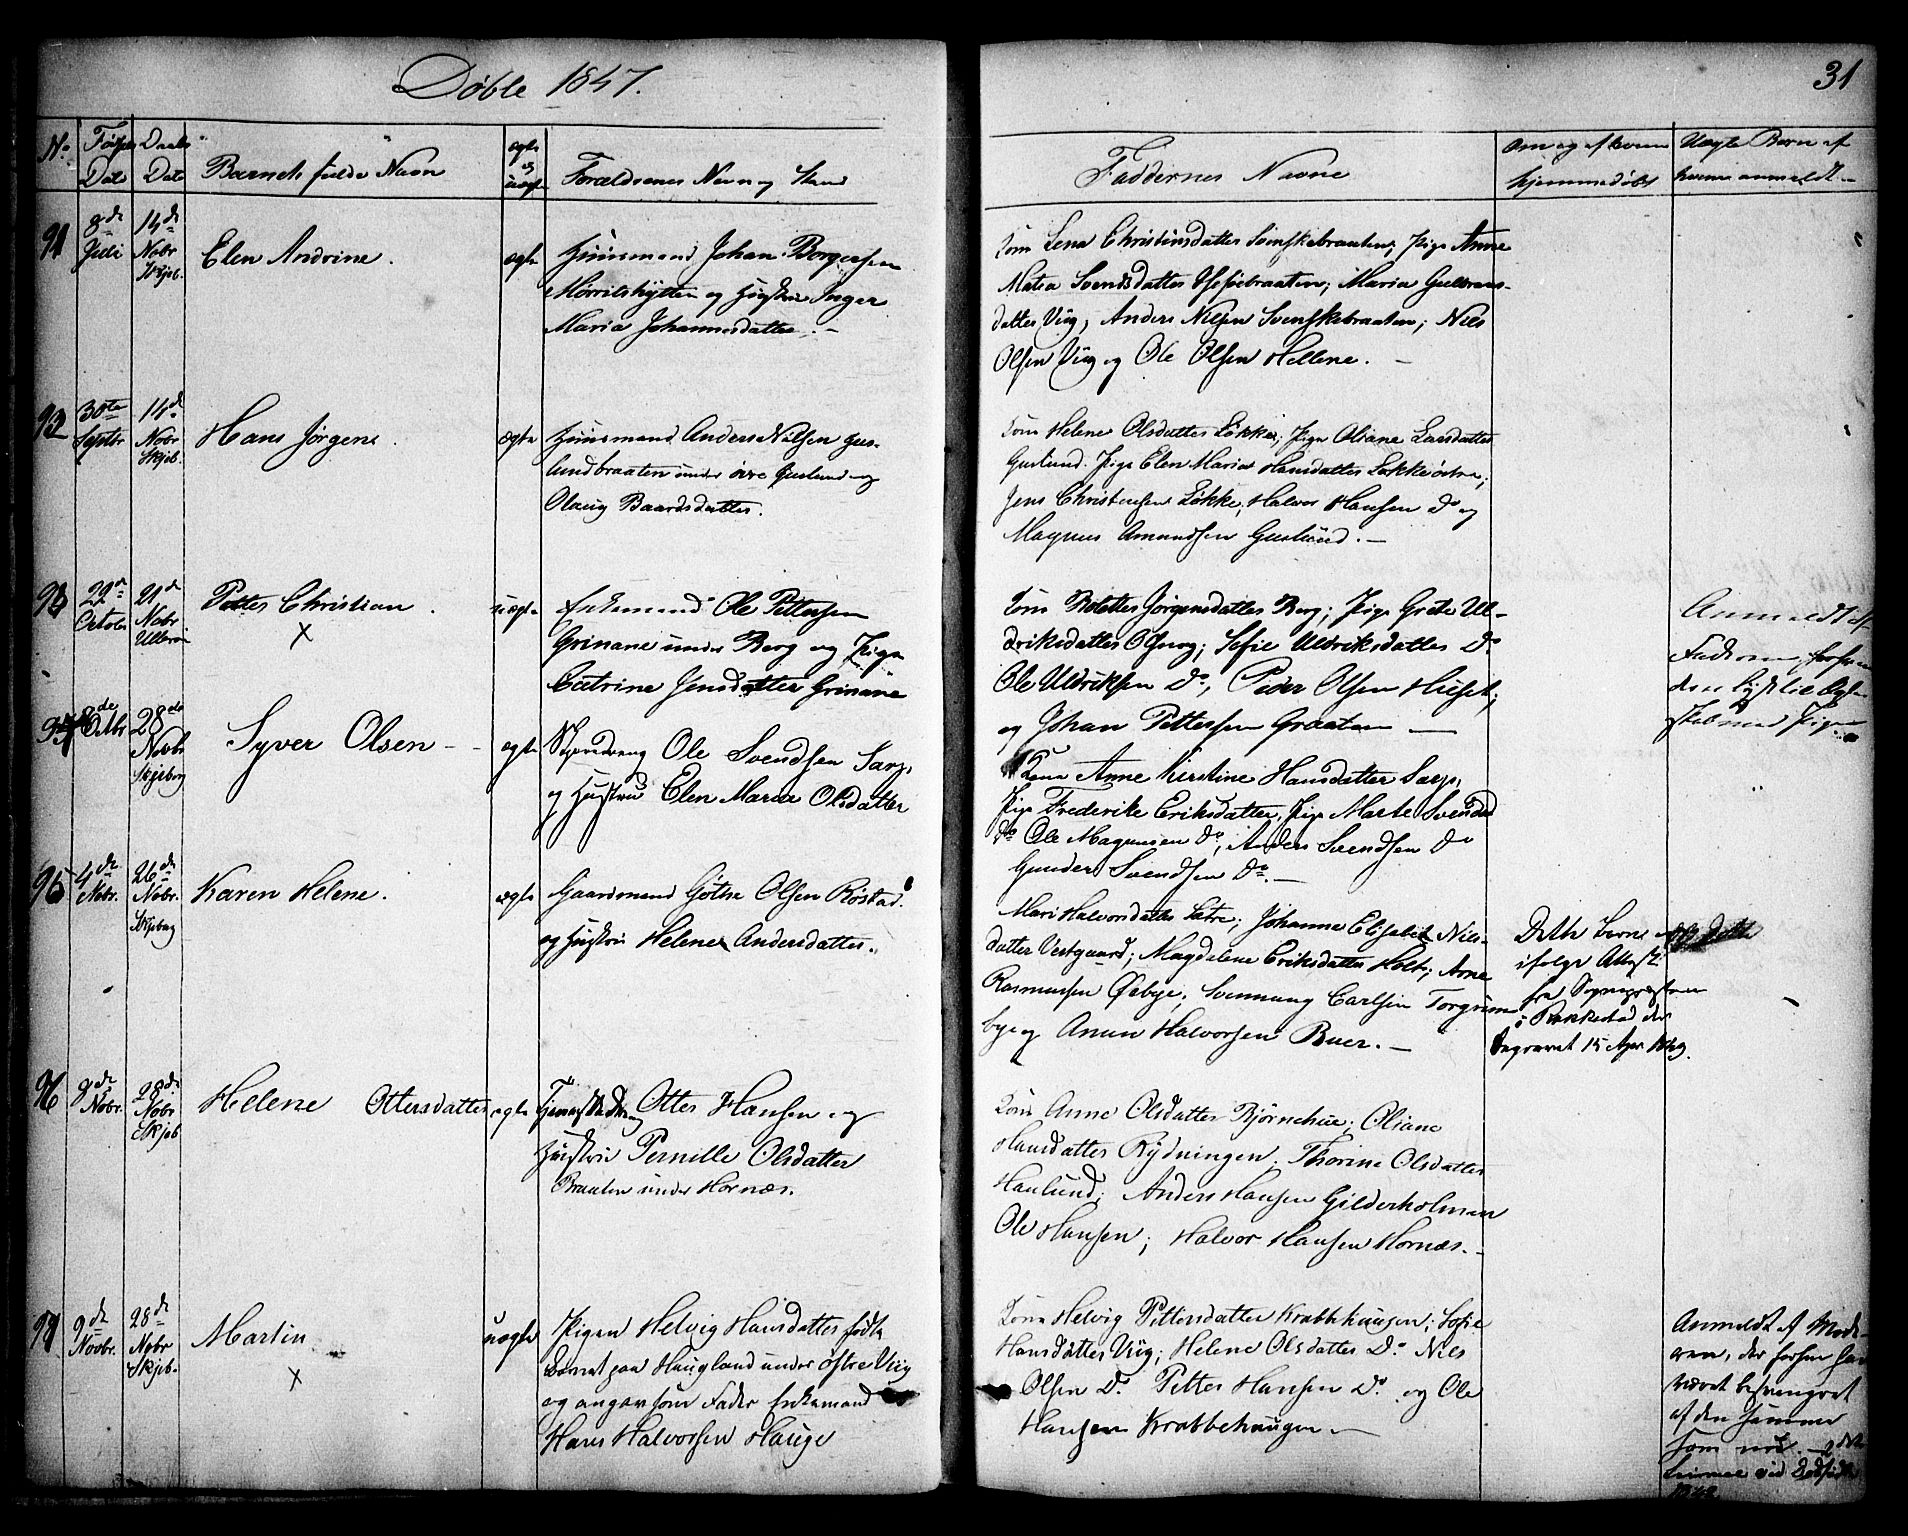 Døbte 1847.
31
No.
Fødsels Daabs
Dato Dato
Barnets fulde Navn
ægte
uægte
Forældrenes Navn og Stand
Faddernes Navne
Om og af hvem
hjemmedøbt
Uægte Børn af
hvem anmeldt
91
8de
Juli
14de
Nobr
Skjeb.
Elen Andrine.
ægte
Huusmand Johan Borgersen
og Hustrue Inger
Maria Johannesdatter.
Kone Lena Christensdatter Svenskebraaten; Pige Anne
Matea Svendsdatter Maria Gulbrans-
datter Viig, Anders Nilsen Svenskebraaten; Niels
Olsen Viig og Ole Olsen Hellene.
92
30te
Septbr
14de
Nobr
Skjeb.
Hans Jørgen.
ægte
Huusmand Anders Nilsen Gus-
lundbraaten under øvre Guslund og
Olaug Baardsdatter.
Kone Helene Olsdatter Løkke; Pige Oliane Larsdatter
Guslund. Pige Elen Maria Hansdatter Løkke østre;
Jens Christensen Løkke; Halvor Hansen Do og
Magnus Amundsen Guslund.
93
22de
Octobr
21de
Nobr
Ullerøe
Petter Christian.
X
uægte
Enkemand Ole Pettersen
Grinane under Berg og Pige
Catrine Jensdatter Grinane
Kone Bolette Jørgensdatter Berg; Pige Grete Ul-
driksdatter Sofie Uldriksdatter Do
Ole Uldriksen Do, Peder Olsen
og Johan Pettersen Graaten
Anmeldt af
Faderen
Pigen
94
8de
Octbr
28de
Novbr
Skjeberg
Syver Olsen
ægte
Ole Svendsen Sarp.
og Hustru Elen Maria Olsdatter
Kone Anne Kirstine Hansdatter Sarp,
Pige Frederike Eriksdatter, Pige Marte Svendsd
do Ole Magnusen Do, Anders Svendsen Do
Gunder Svendsen Do.
95
4de
Nobr.
26de
Nobr.
Skjeberg
Karen Helene.
ægte
Gaardmand Gøthe Olsen Røstad
og Hustrue Helene Andersdatter.
Mari Halvorsdatter Sætre; Johanne Elisabet Niels-
datter Vestgaard; Magdalene Eriksdatter Holt; Arne
Rasmussen Østbye; Svennung Carlsen Torgrim
bye og Anun Halvorsen Buer.
Dette Barn er
ifølge Attest
fra Sognepræsten
i Rakkestad der
begravet 15 Apr 1849.
96
9de
Nobr.
28de
Nobr
Skjeb
Helene Ottersdatter
ægte
Otter Hansen og
Hustrue Pernille Olsdatter
Braaten under Hornæs.
Kone Anne Olsdatter Bjørnehue; Oliane
Hansdatter Rydningen. Thorine Olsdatter
Haulund; Anders Hansen Gilderholmen
Ole Hansen; Halvor Hansen Hornæs.
97
9de
Novbr.
28de
Nobr
Skjeb.
Martin
X
uægte
Pigen Helvig Hansdatter fødte
Barnet paa Haugland under østre Viig
og angav som Fader Enkemand
Hans Halvorsen Hauge
Kone Helvig Pettersdatter Krabbehaugen; Sofie
Hansdatter Viig; Helene Olsdatter Do Niels
Olsen Do. Petter Hansen Do. og Ole
Hansen Krabbehaugen.
Anmeldt af Mode-
ren, der forhen har
været besvangret
af den samme
som nu.